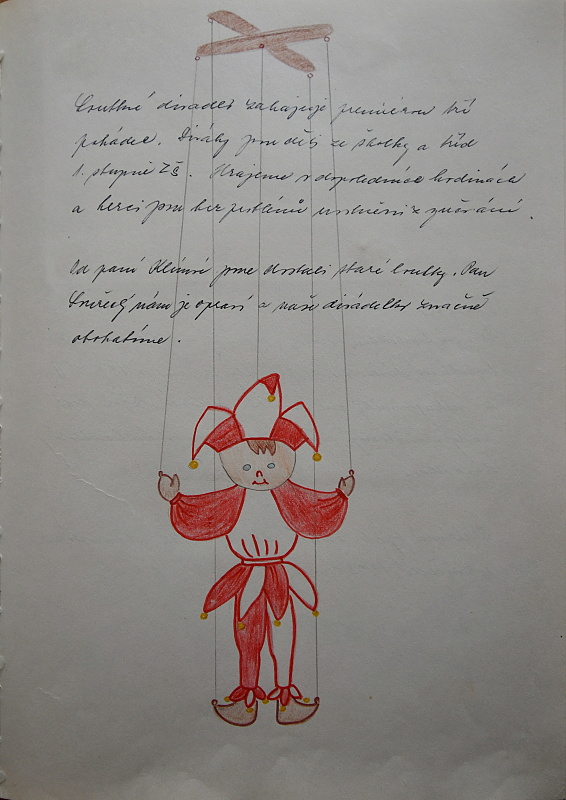 Loutkové divadlo zahajuje premiérou tří
pohádek. Diváky jsou děti ze školky a tříd
1. stupně ZŠ. Hrajeme v dopoledních hodinách
a herci jsou bez problémů uvolněni z
Od paní Klímové jsme dostali staré loutky. Pan
nám je opraví a naše divadélko značně
obohatíme.